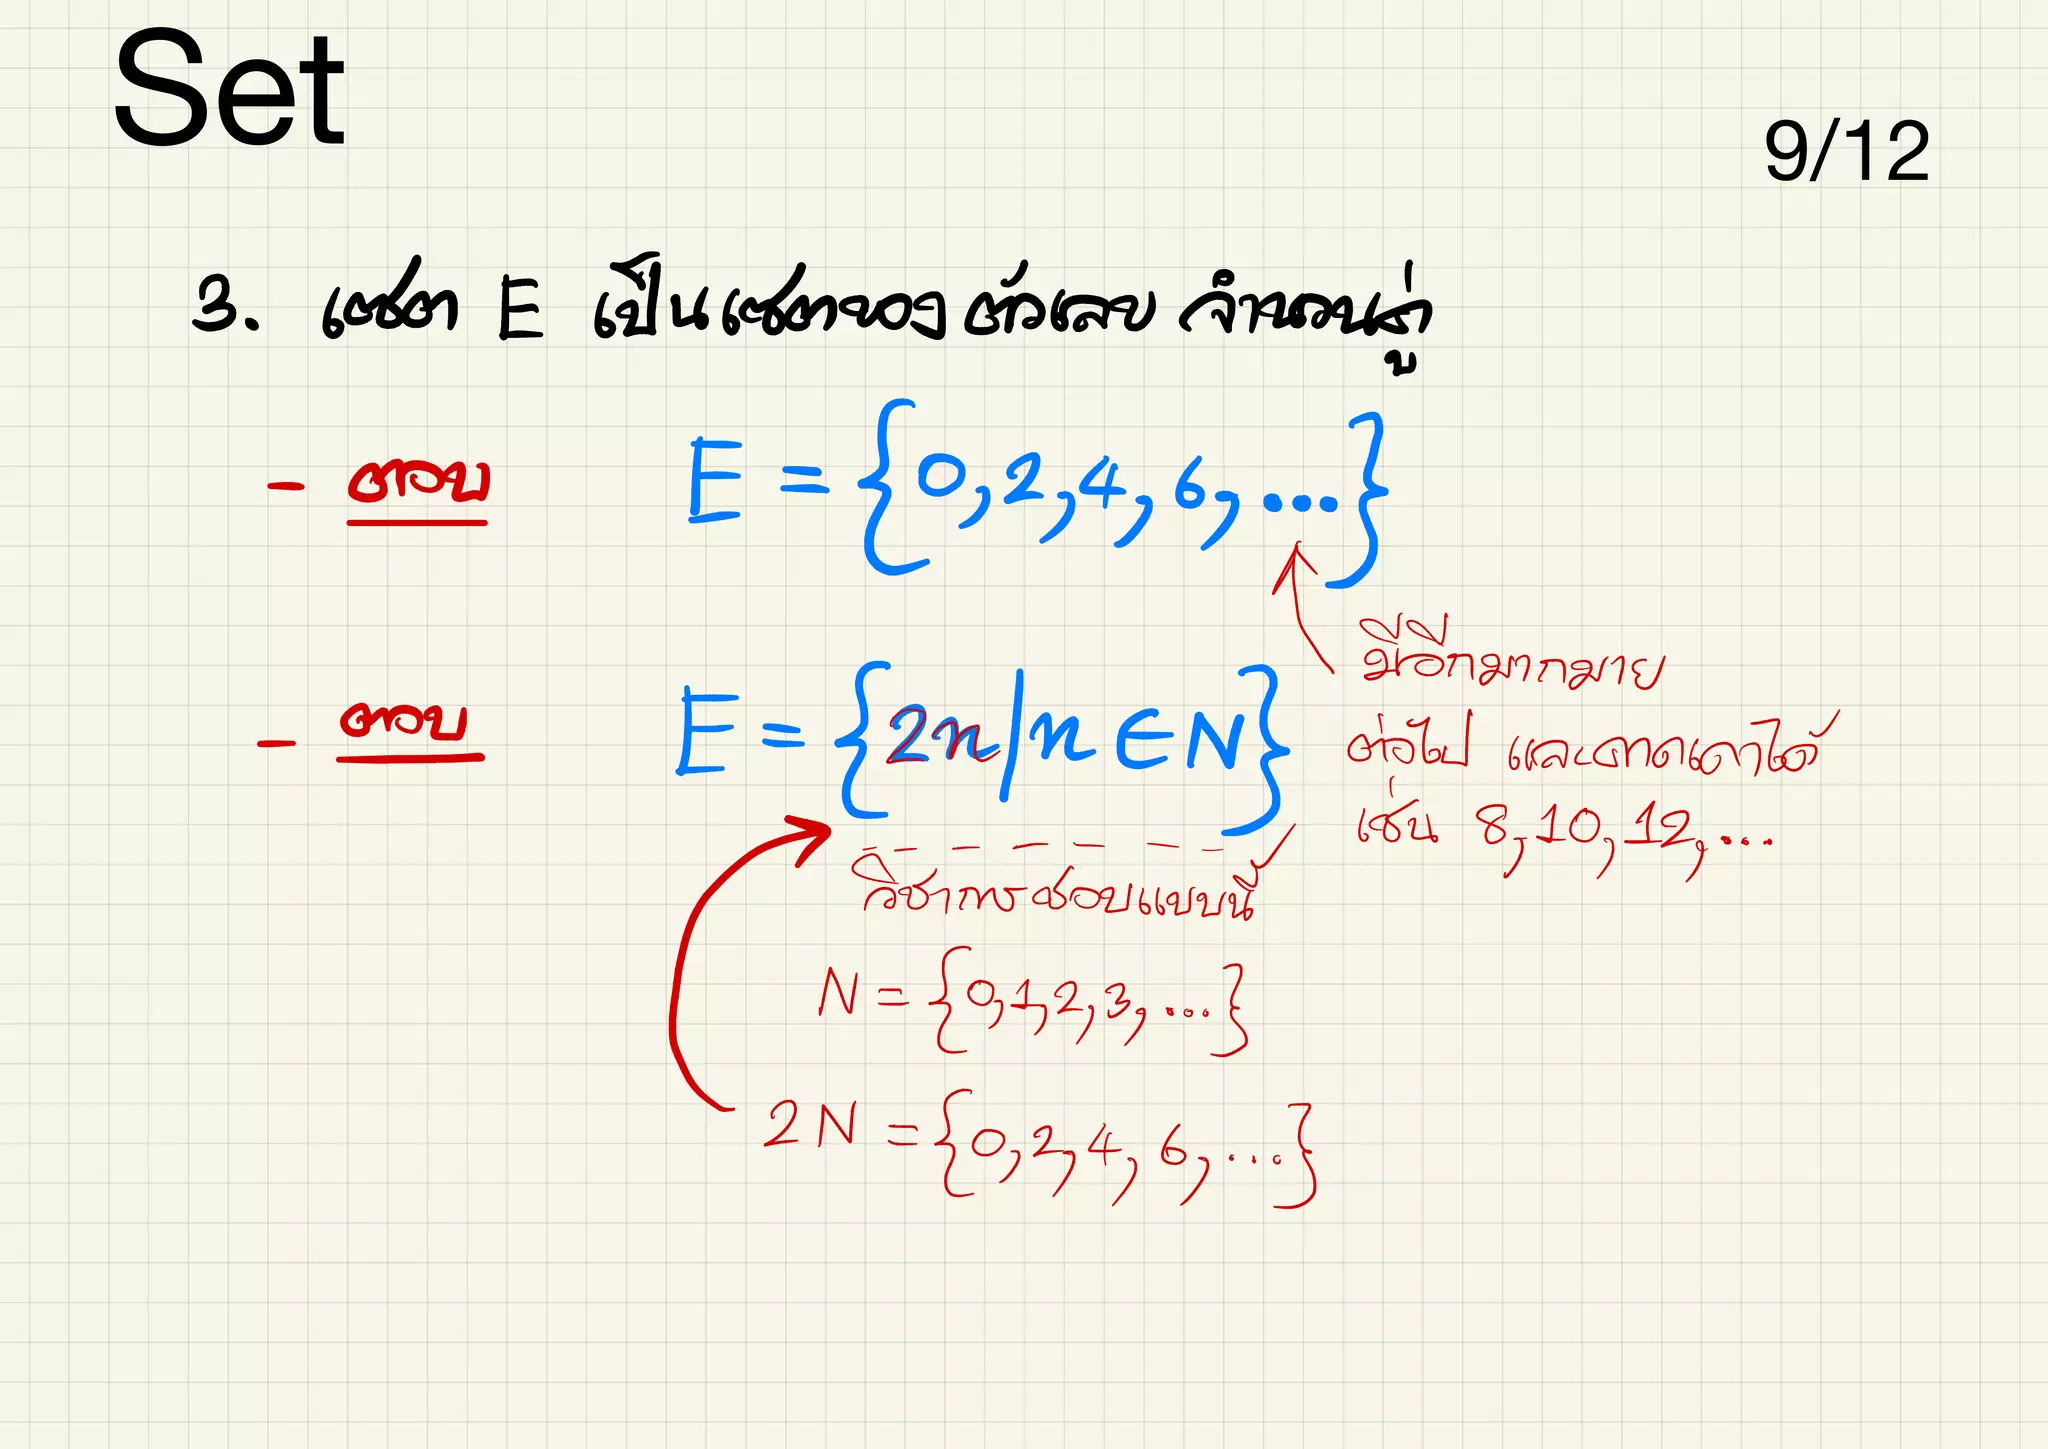 Set
9/12
3. เซต E เป็นเซตของ ตัวเลข จำนวนคู่
- ตอบ E = {0,2,4,6,...}
มีอีกมากมาย
- ตอบ E = {2n|n ∈ N}
ต่อไป และคาดเดาได้
เช่น 8,10,12,...
วิชาการชอบแบบนี้
N = {0,1,2,3,...}
2N = {0,2,4,6,...}